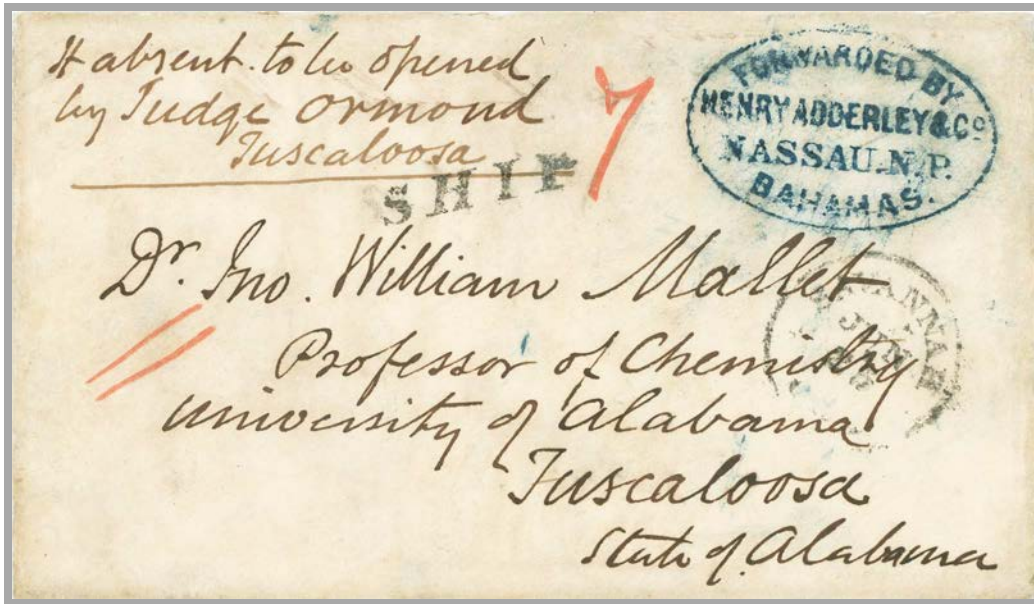 If absent. to be opened
by Judge Ormond
Tuscaloosa
7
SHIP
FORWARDED BY
HENRY ADDERLEY & Co
NASSAU. N. P.
BAHAMAS.
Dr. Jno. William Mallet
Professor of Chemistry
University of Alabama
Tuscaloosa
State of. Alabama
SAVANNAH